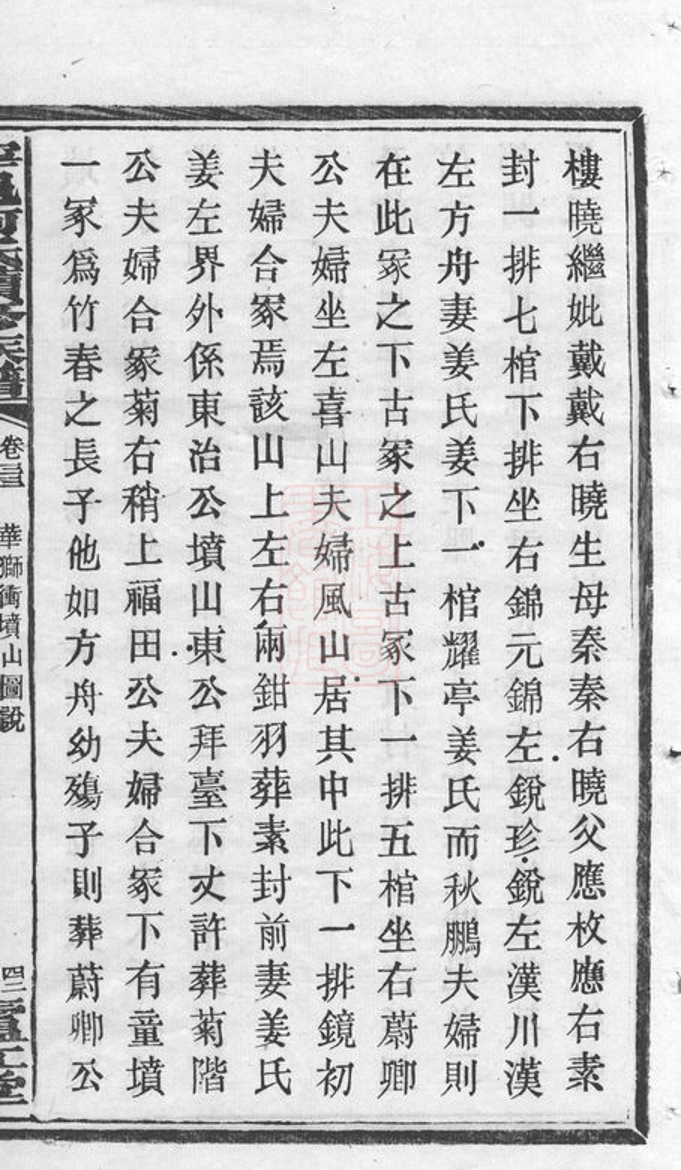 樓曉繼妣戴戴右曉生母秦秦右曉父應枚應右素
封一排七棺下排坐右錦元錦左銳珍銳左漢川漢
左方舟妻姜氏姜下一棺耀亭姜氏而秋鵬夫婦則
在此冢之下古冢之上古冢下一排五棺坐右蔚卿
公夫婦坐左喜山夫婦風山居其中此下一排鏡初
夫婦合冢焉該山上左右兩鉗羽葬素封前妻姜氏
姜左界外係東治公墳山東公拜臺下丈許葬菊階
公夫婦合冢菊右稍上福田公夫婦合冢下有童墳
一冢爲竹春之長子他如方舟幼殤子則葬蔚卿公
族譜 卷三 華獅衝墳山圖說 四二 堂